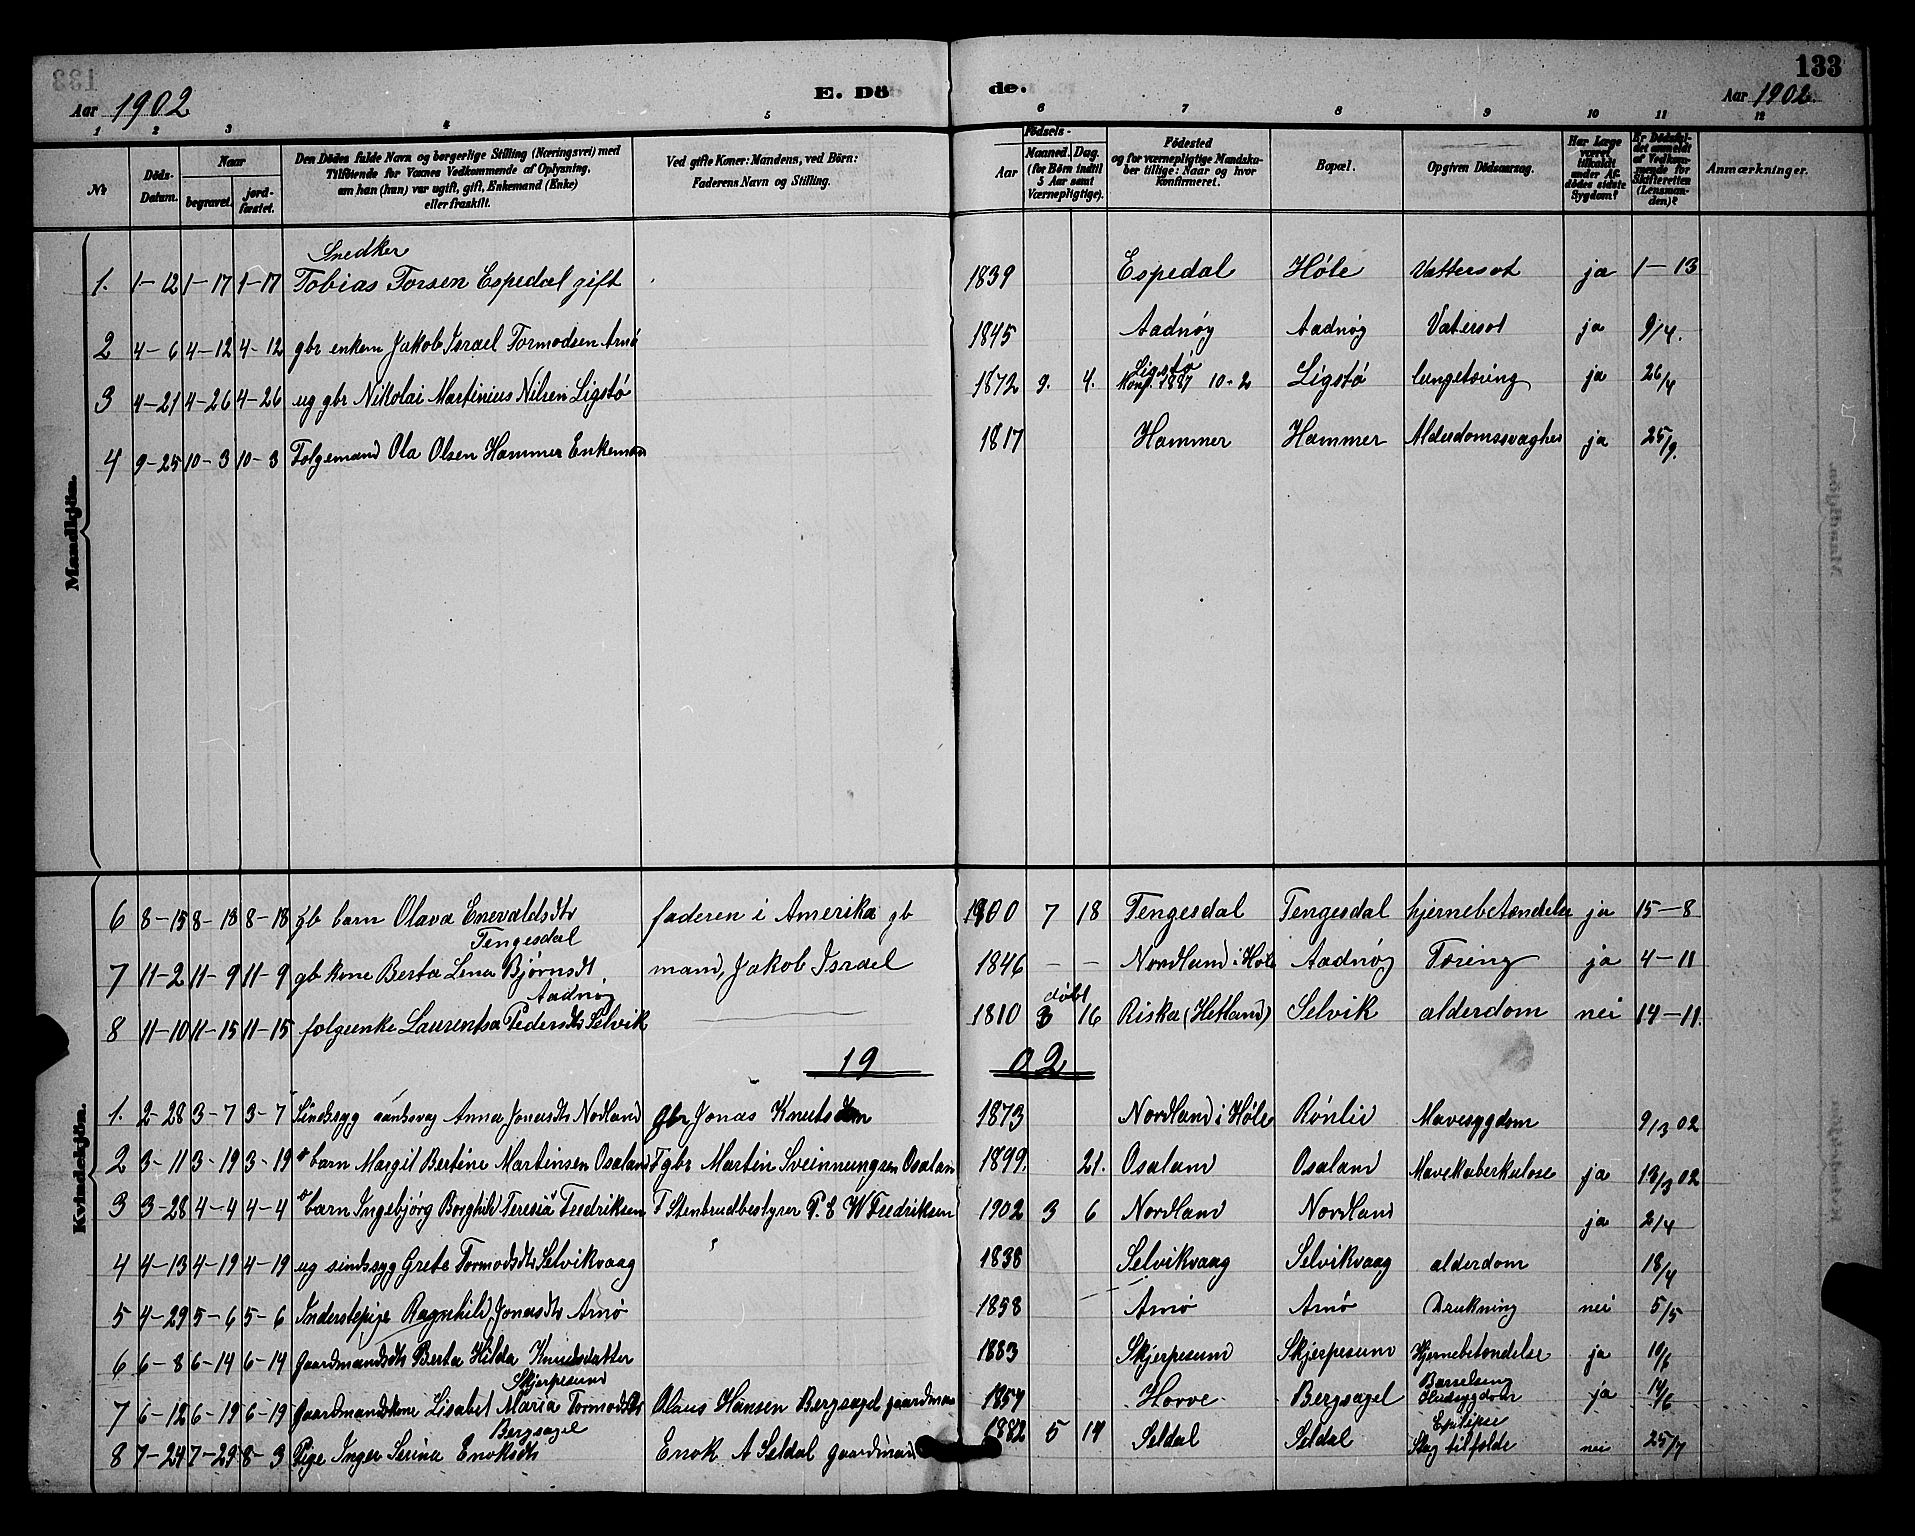 133
Aar 1902
E. Dö de.
Aar 1902.
1 2 3 4 5 6 7 8 9 10 11 12
№
Döds-Datum.
Naar
begravet.
jord-fæstet.
Den Dödes fulde Navn og borgerlige Stilling (Næringsvei) med
Tilföiende for Voxnes Vedkommende af Oplysning,
om han (hun) var ugift, gift, Enkemand (Enke)
eller fraskilt.
Ved gifte Koner: Mandens, ved Börn:
Faderens Navn og Stilling.
Födsels-
Aar
Maaned. Dag.
(for Börn indtil
5 Aar samt
Værnepligtige).
Födested
og for værnepligtige Mandska-
ber tillige: Naar og hvor
Konfirmeret.
Bopæl.
Opgiven Dödsaarsag.
Har Læge
været
tilkaldt
under Af-
dödes sidste
Sygdom?
Er Dödsfal-
det anmeldt
af Vedkom-
mende for
Skifteretten
(Lensman-
den)?
Anmærkninger.
Mandkjön.
Snedker
1. 1-12 1-17 1-17 Tobias Torsen Espedal gift 1839 Espedal Høle Vattersot ja 1-13
2 4-6 4-12 4-12 gbr enkem Jakob Israel Tormodsen Arnø 1845 Aadnøy Aadnøy Vatersot ja 9/4.
3 4-21 4-26 4-26 ug gbr Nikolai Martinius Nilsen Ligstø 1872 9. 4. Ligstø Konf 1887 10-2 Ligstø lungetæring ja 26/4
4 9-25 10-3 10-3 Følgemand Ola Olsen Hammer Enkeman 1817 Hammer Hammer Alderdomssvaghed ja 25/9.
Kvindekjön.
6 8-15 8-18 8-18 gb barn Olava Enevaldsdtr Tengesdal faderen i Amerika gb 1900 7 18 Tengesdal Tengesdal hjernebetændelse ja 15-8
7 11-2 11-9 11-9 gb kone Berta Lena Bjørnsdt. Aadnøy mand, Jakob Israel 1846 - - Nordland i Høle Aadnøy Tæring ja 4-11
8 11-10 11-15 11-15 følgeenke Laurentsa Pedersdtr Selvik 1810 døbt 3 16 Riska (Hetland) Selvik alderdom nei 14-11.
19 02
1. 2-28 3-7 3-7 Sindssyg aandsvag Anna Jonasdtr Nodland Gbr Jonas Knutsen 1873 Nordland i Høle Rønlid Mavesygdom 9/3 02
2 3-11 3-19 3-19 barn Margit Bertine Martinsen Osaland F gbr Martin Sveinnungsen Osalan 1899. 21. Osaland Osaland Mavetuberkulose ja 13/3 02
3 3-28 4-4 4-4 barn Ingebjørg Borghild Teresia Fredriksen F Stenbrudbestyrer P. E W Fredriksen 1902 3 6 Nordland Nordland ja 2/4
4 4-13 4-19 4-19 ug sindssyg Grete Tormodsdtr Selvikvaag 1838 Selvikvaag Selvikvaag alderdom 18/4
5 4-29 5-6 5-6 Inderstepige Ragnhild Jonasdtr Arnø 1858 Arnø Arnø Drukning nei 5/5
6 6-8 6-14 6-14 Gaardmandsdtr Berta Hilda Knudsdatter Skjørpesund 1883 Skjørpesund Skjørpesund Hjernebetændelse ja 10/6
7 6-12 6-19 6-19 Gaardmandskone Lisabet Maria Tormodsdtr Bergsagel Olaus Hansen Bergsagel gaardman 1857 Horve Bergsagel Barselseng ja 14/6
8 7-24 7-29 8-3 Pige Inger Serina Enoksdtr Enok A Seldal gaardmand 1882 5 14 Seldal Seldal Epilepsi Slag tilfælde nei 25/7